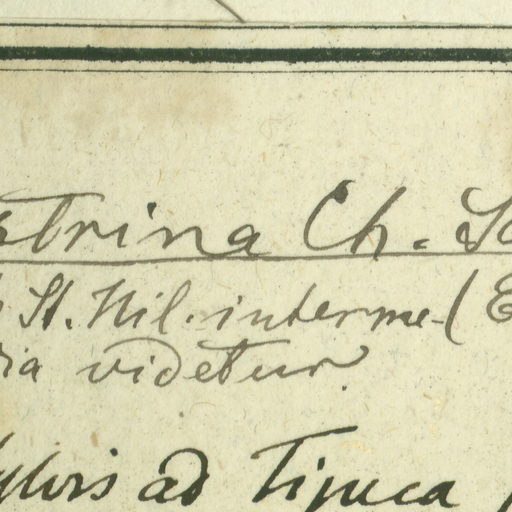 trina Ch. Sc
St. Hil. interme- (E
ia videtur.
sylvis ad Tijuca